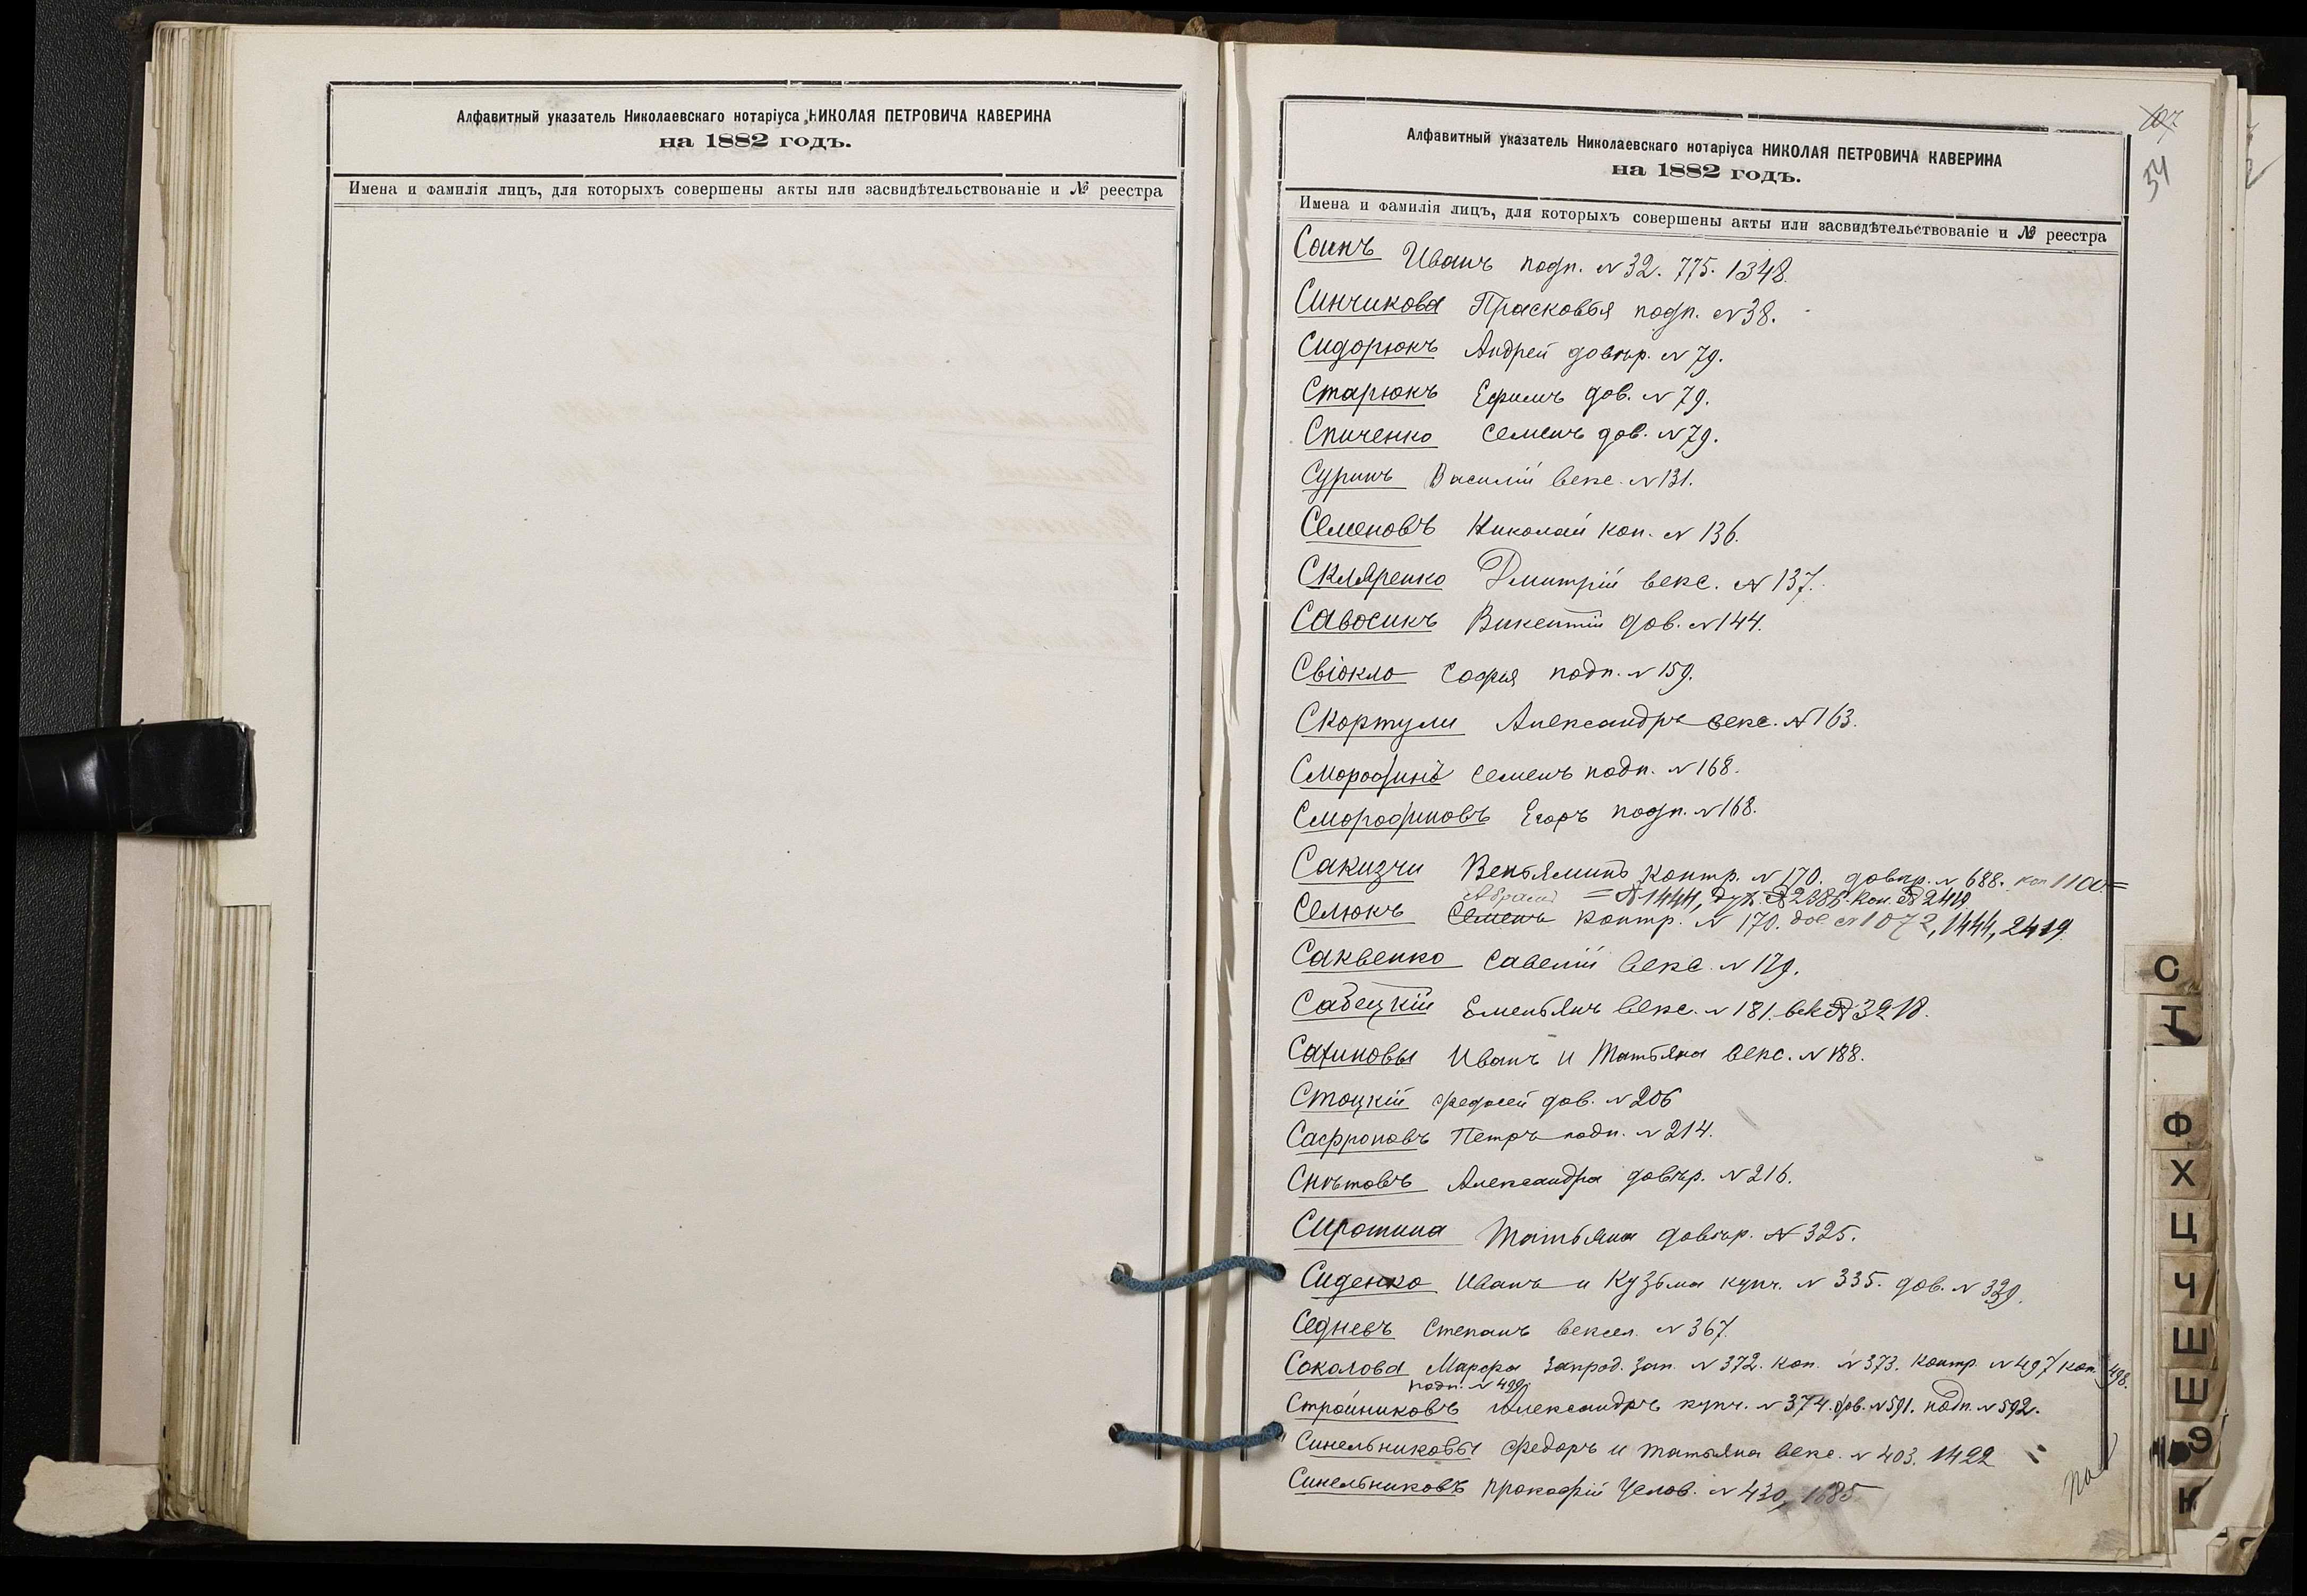 Алфавитный указатель Николаевскаго нотаріуса НИКОЛАЯ ПЕТРОВИЧА КАВЕРИНА
на 1882 годъ.
Имена и фамилія лицъ, для которыхъ совершены акты или засвидѣтельствованіе и № реестра
107
54
Алфавитный указатель Николаевскаго нотаріуса НИКОЛАЯ ПЕТРОВИЧА КАВЕРИНА
на 1882 годъ.
Имена и фамилія лицъ, для которыхъ совершены акты или засвидѣтельствованіе и № реестра
Иванъ подп. № 32. 775. 1348.
Синчикова Прасковья подп. № 38.
Сидорюкъ Андрей довѣр. № 79.
Старюкъ Ефимъ дов. № 79.
Спиченко Семенъ дов. № 79.
Суринъ Василій векс. № 131.
Семеновъ Николай коп. № 136.
Скляренко Дмитрій векс. № 137.
Савосикъ Викентій дов. № 144.
Свіокло Софья подп. № 159.
Скортули Александръ векс. № 163.
Смородинъ Семенъ подп. № 168.
Смородиновъ Егоръ подп. № 168.
Сакизчи Веньяминъ контр. № 170. довѣр. № 688. коп 1100=
Абрамъ = № 1444, дух. № 2386. коп. № 2419
Селюкъ Семенъ контр. № 170. дов № 1072, 1444, 2419.
Саквенко Савелій векс. № 179.
Сабецкій Емельянъ векс. № 181. век № 3218.
Иванъ и Татьяна векс. № 188.
Стоцкій Федосей дов. № 206
Сафроновъ Петръ подп. № 214.
Снѣтовъ Александра довѣр. № 216.
Сиротина Татьяна довѣр. № 325.
Сиденко Иванъ и Кузьма купч. № 335. дов. № 339.
Седневъ Степанъ вексел. № 367.
Соколова Марфа запрод. зап. № 372. коп. № 373. контр. № 497 коп. 498.
подп. № 499.
Стройниковъ Александръ купч. № 374. дов. № 591. подп. № 592.
Синельниковы Федоръ и Татьяна векс. № 403. 1422
Синельниковъ Прокофій Услов. № 430, 1685
С
Т
Ф
Х
Ц
Ч
Ш
Ш
Э